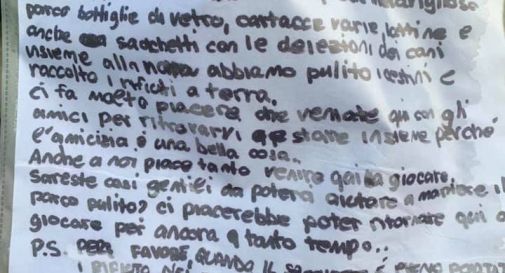 parco bottiglie di vetro, cartacce varie, lattine e
anche sacchetti con le deiezioni dei cani
insieme alla nonna abbiamo pulito i cestini e
raccolto i rifiuti a terra.
ci fa molto piacere che veniate qui con gli
amici per ritrovarvi e stare insieme perché
l'amicizia è una bella cosa.
Anche a noi piace tanto venire qui a giocare,
sareste così gentili da poterci aiutare a mantenere il
parco pulito? ci piacerebbe poter ritornare qui a
giocare per ancora tanto tempo..
P.S. PER FAVORE, QUANDO IL È PIENO PORTATE
I RIFIUTI NEI